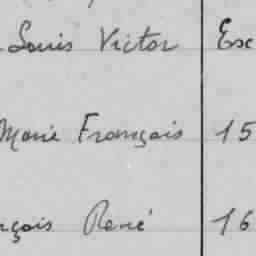 Louis Victor Esc
Marie François 15
nçois René 16